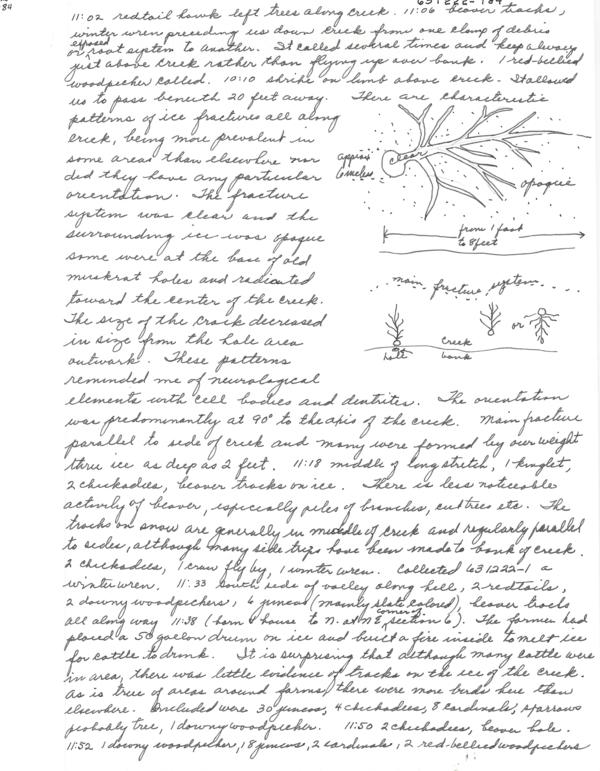 84
631222-184
11:02 redtail hawk left trees along creek. 11:06 beaver tracks,
winter wren preceding us down creek from one clump of debris
exposed
or root system to another. It called several times and keep always
just above creek rather than flying up over bank. 1 red-bellied
woodpecker called. 10:10 shrike on limb above creek. It allowed
us to pass beneath 20 feet away. There are characteristic
patterns of ice fractures all along
creek, being more prevalent in
some areas than elsewhere nor
did they have any particular
orientation. The fracture
system was clear and the
surrounding ice was opaque
some were at the base of old
muskrat holes and radiated
toward the center of the creek.
The size of the crack decreased
in size from the hole area
outward. These patterns
reminded me of neurological
approx
clear
opaque
from 1 foot
to 8 feet
main fracture system
or
hole
creek
bank
elements with cell bodies and dentrites. The orientation
was predominantly at 90° to the axis of the creek. Main fracture
parallel to side of creek and many were formed by our weight
thru ice as deep as 2 feet. 11:18 middle of long stretch, 1 kinglet,
2 chickadees, beaver tracks on ice. There is less noticeable
activity of beaver, especially piles of branches, cut trees etc. The
tracks on snow are generally in middle of creek and regularly parallel
to sides, although many side trips have been made to bank of creek.
2 chickadees, 1 crow fly by, 1 winter wren. Collected 631222-1 a
winter wren. 11:33 south side of valley along hill, 2 redtails,
2 downy woodpeckers, 6 juncos (mainly slate colored), beaver tracks
corner of
all along way 11:38 (barn & house to N. at NE, section 6). The farmer had
placed a 50 gallon drum on ice and built a fire inside to melt ice
for cattle to drink. It is surprising that although many cattle were
in area, there was little evidence of tracks on the ice of the creek.
As is true of areas around farms, there were more birds here than
elsewhere. Included were 30 juncos, 4 chickadees, 8 cardinals, sparrows
probably tree, 1 downy woodpecker. 11:50 2 chickadees, beaver hole.
11:52 1 downy woodpecker, 18 juncos, 2 cardinals, 2 red-bellied woodpeckers